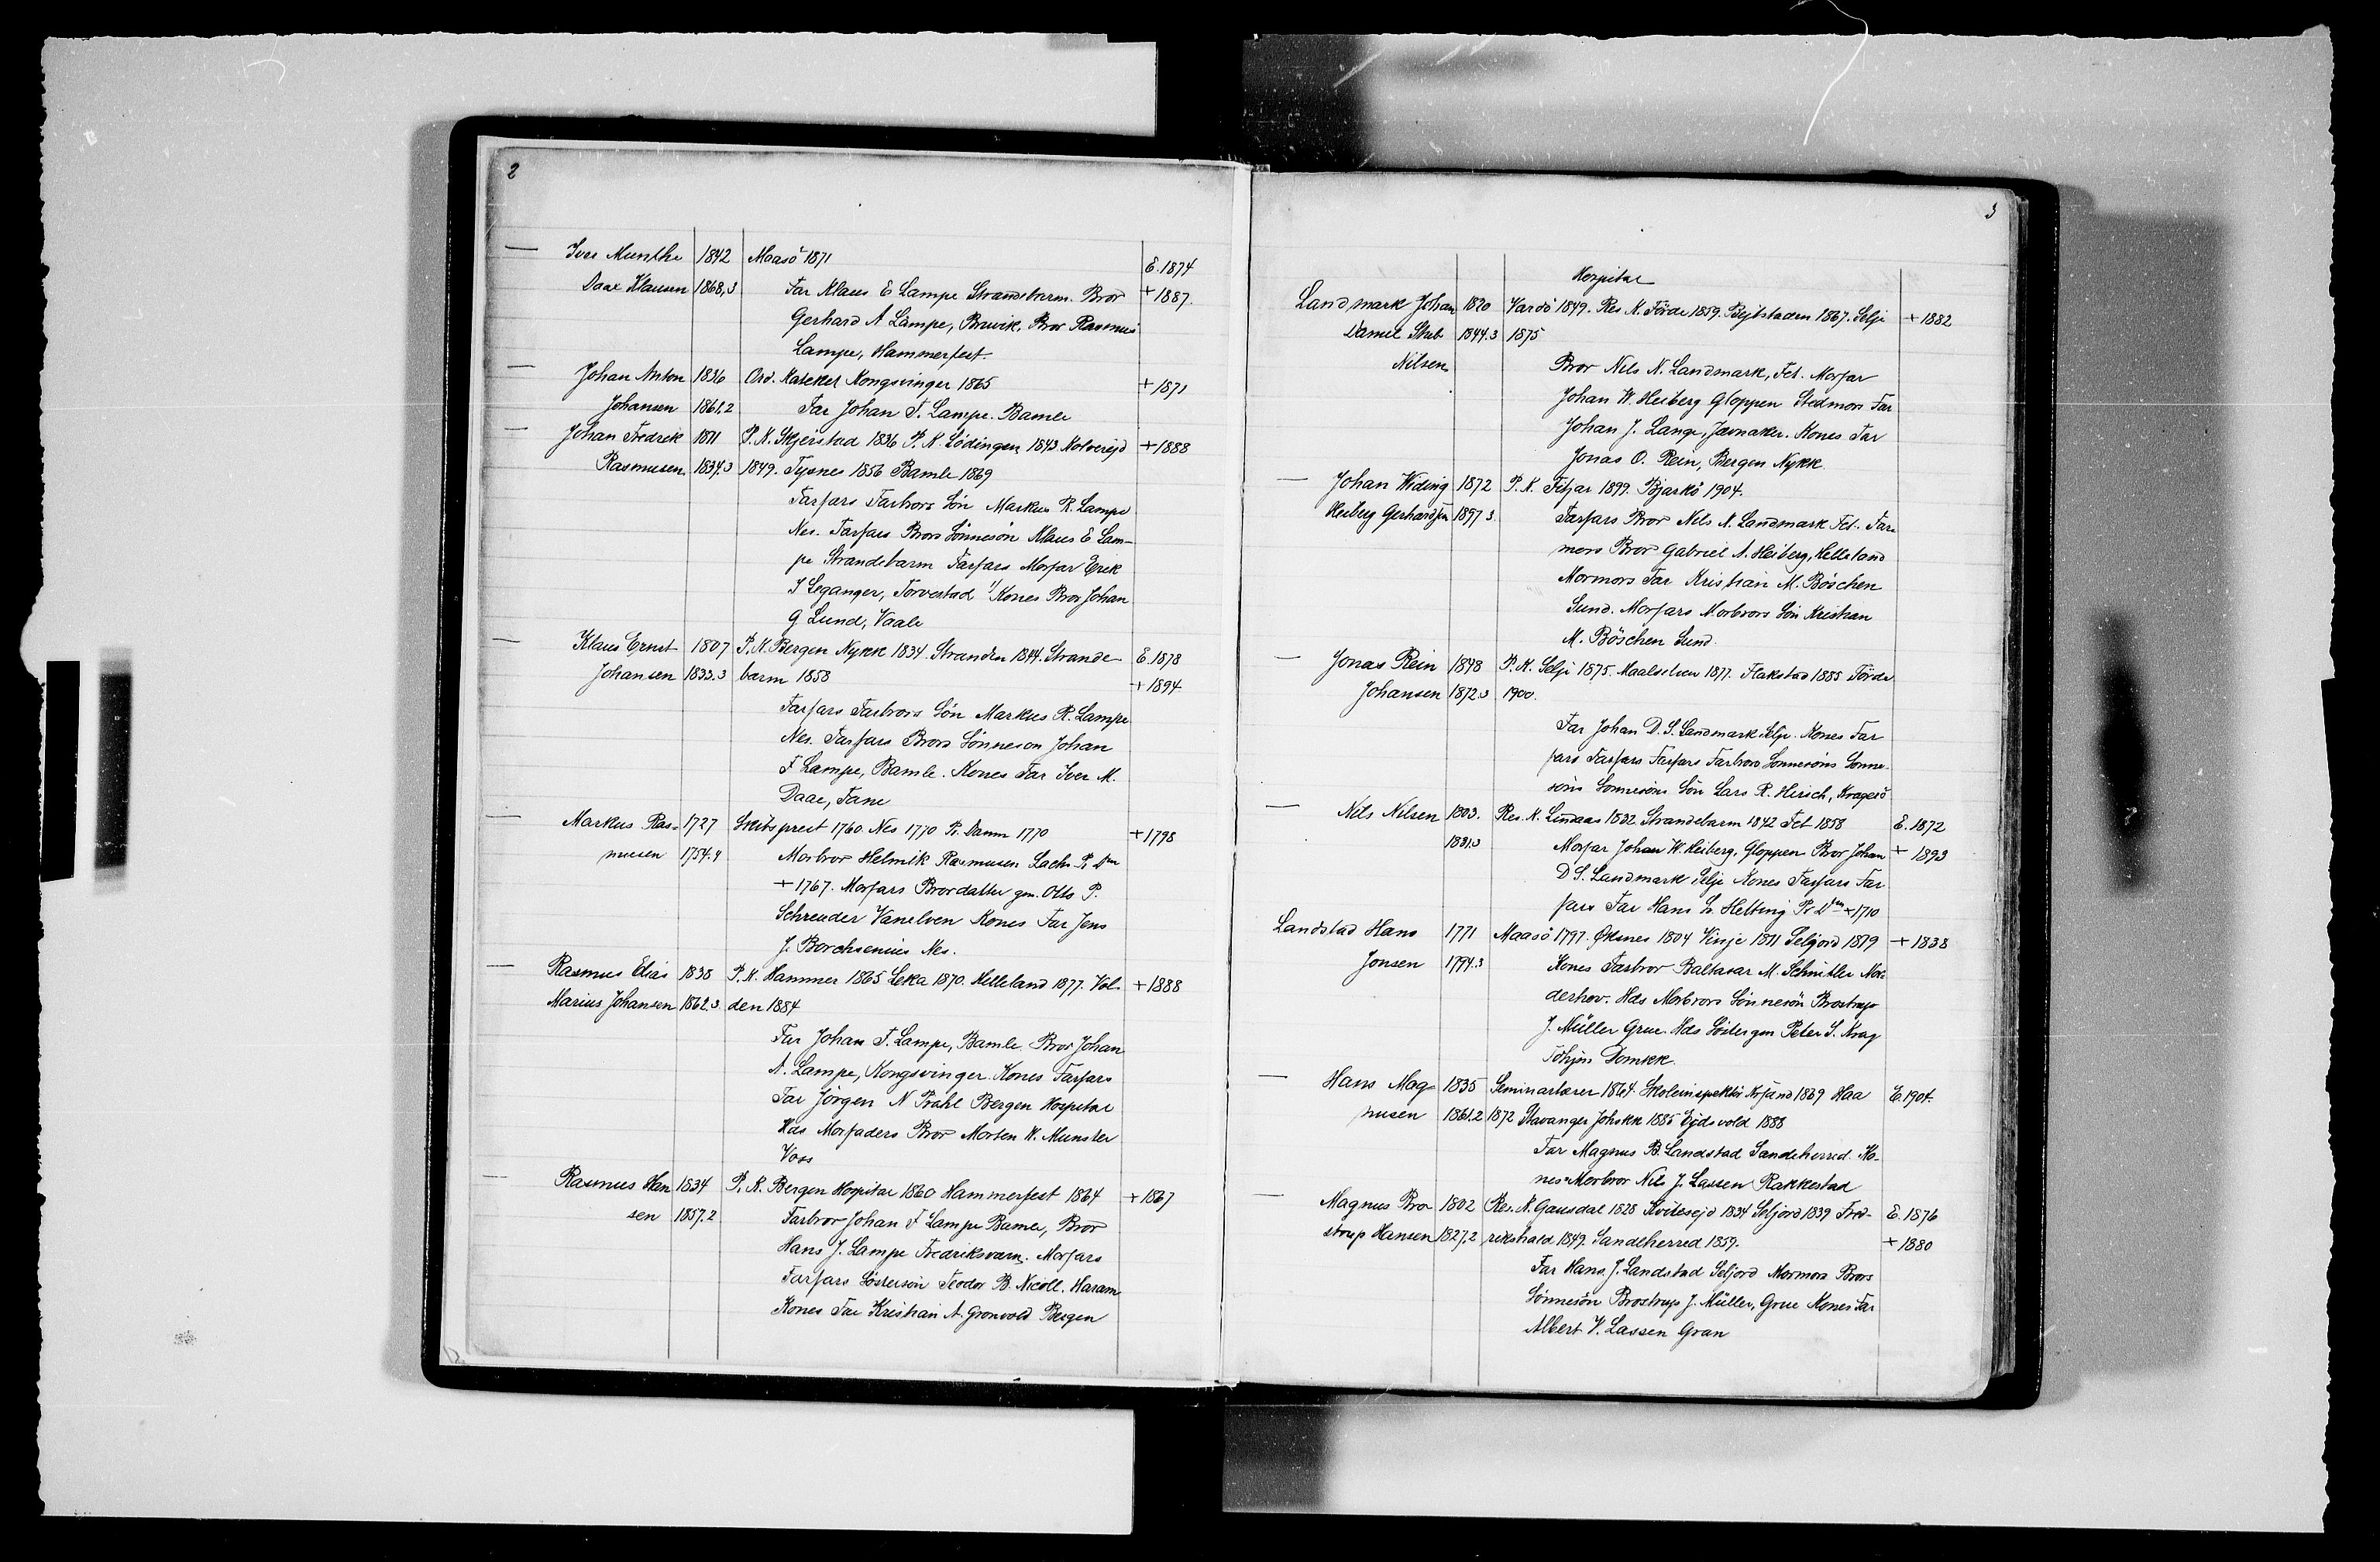 2
— Iver Munthe 1842 Maasö 1871 E. 1874
Daae Klausen 1868,3 Far Klaus E Lampe Strandebarm. Bror + 1887.
Gerhard A Lampe, Bruvik, Bror Rasmus
Lampe, Hammerfest.
— Johan Anton 1836 Ord. Kateket Kongsvinger 1865 + 1871
Johansen 1861,2 Far Johan F. Lampe. Bamle
— Johan Fredrik 1811 P. K. Skjerstad 1836 P. K. Lödingen 1843 Kolvereid + 1888
Rasmusen 1834.3 1849. Tysnes 1856 Bamle 1869
Farfars Farbrors Sön Markus R. Lampe
Nes. Farfars Brors Sönnesön Klaus E Lam-
pe Strandebarm Farfars Morfar Erik
J Leganger, Torvestad 1/ Kones Bror Johan
G Lund, Vaale
— Klaus Ernst 1807 P. K. Bergen Nykk 1834. Stranden 1844. Strande- E. 1878
Johansen 1833.3 barm 1858 + 1894
Farfars Farbrors Sön Markus R. Lampe
Nes. Farfars Brors Sönneson Johan
F Lampe, Bamle. Kones Far Iver M.
Daae, Fane
— Markus Ras- 1727 Skibsprest 1760. Nes 1770 Pr. Danm 1770 + 1798
musen 1754.4 Morbror Helmik Rasmusen Lachs Pr Dm
+ 1767. Morfars Brordatter gm. Otto P.
Schreuder Vanelven Kones Far Jens
J. Borchsenius Nes.
— Rasmus Elias 1838 P. K. Hammer 1865 Leka 1870. Helleland 1877. Vol- + 1888
Marius Johansen 1862.3. den 1884
Far Johan F. Lampe, Bamle. Bror Johan
A. Lampe, Kongsvinger. Kones Farfars
Far Jörgen N Prahl Bergen Hospital
Hds Morfaders Bror Morten K. Munster
Voss
— Rasmus Han 1834 P. K. Bergen Hospital 1860 Hammerfest 1864 + 1867
sen 1857.2 Farbror Johan F Lampe Bamle, Bror
Hans J. Lampe Fredriksværn. Morfars
Farfars Sösterson Teodor B. Nicoll. Haram
Kones Far Kristian A. Gronvold Bergen
3
Hospital
Landmark Johan 1820 Vardö 1849. Res K. Förde 1859. Bejtstaden 1867. Selje + 1882
Daniel Stub 1844.3 1875
Nilsen Bror Nils N. Landmark, Fet. Morfar
Johan W. Heiberg Gloppen Stedmors Far
Johan J. Lange, Jævnaker. Kones Far
Jonas O. Rein, Bergen Nykk.
— Johan Widing 1872 P. K. Fitjar 1899. Bjarkö 1904.
Heiberg Gerhardsen 1897 3 Farfars Bror Nils N. Landmark Fet. Far-
mors Bror Gabriel A. Heiberg, Helleland
Mormors Far Kristian M. Böschen
Sund. Morfars Morbrors Sön Kristian
M. Böschen Sund
— Jonas Rein 1848 P. K. Selje 1875. Maalselven 1877. Flakstad 1885 Förde
Johansen 1872.3 1900.
Far Johan D. S. Landmark Selje. Kones Far
fars Farfars Farfars Farbrors Sonnesöns Sonne-
söns Sonnesöns Sön Lars R. Hirsch, Kragerö
— Nils Nilsen 1803. Res. K. Lindaas 1832 Strandebarm 1842 Fet 1858 E. 1872
1831.3 Morfar Johan W. Heiberg, Gloppen Bror Johan + 1893
D S. Landmark Selje Kones Farfars Far
fars Far Hans Hr. Helting Pr Dm + 1710
Landstad Hans 1771 Maasö 1797. Öksnes 1804 Vinje 1811 Seljord 1819 + 1838
Jonsen 1794.3 Kones Farbror Baltasar M. Schnitler Nor-
derhov. Hds Morbrors Sönnesön Brostrup
J. Müller Grue. Hds Söster gm Peter S. Krag
Tthjm Domkk.
— Hans Mag- 1835 Seminarlærer 1864. Skoleinspektör Krsand 1869 Haa E. 1904.
nusen 1861.2 1872 Stavanger Johskk 1885 Ejdsvold 1888
Far Magnus B. Landstad Sandeherred. Ko-
nes Morbror Nils J. Lassen Rakkestad
— Magnus Bro- 1802 Res. K. Gausdal 1828 Kvitesejd 1834 Seljord 1839 Fred- E. 1876
strup Hansen 1827.2 rikshald 1849. Sandeherred 1859. + 1880
Far Hans J. Landstad Seljord Mormors Brors
Sönnesön Brostrup J. Müller, Grue Kones Far
Albert V. Lassen Gran